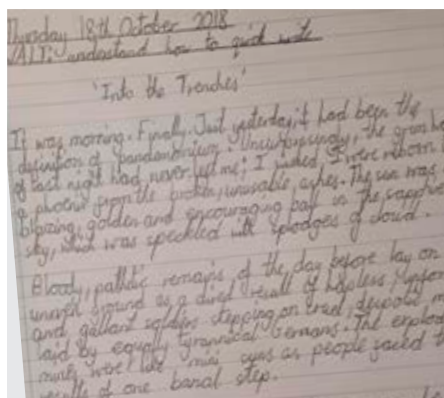 Thursday 18th October 2018
WALT: understand how to quick write
'Into the Trenches'
It was morning. Finally. Just yesterday, it had been the
definition of pandemonium. Unsurprisingly, the grim
of last night had never left me; I wished I were reborn
a phoenix from the broken, unusable, ashes. The sun was
blazing, golden and encouraging ball in the sapphire
sky, which was speckled with splodges of cloud.
Bloody, pathetic remains of the day before lay on
uneven ground as a direct result of helpless,
and gallant soldiers stepping on cruel, despotic
laid by equally tyrannical Germans. The
mines were like mini suns as people faced
results of one banal step.